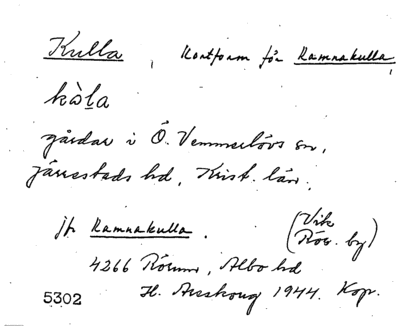 Kulla, Kortform för Ramnakulla,
kùl̲a
gårdar i Ö. Vemmerlövs sn,
Järrestads hd, Krist. län.
jfr Ramnakulla. (Vik
Röv. by)
4266 Rörum, Albo hd
5302 H. Areskoug 1944. Kop.